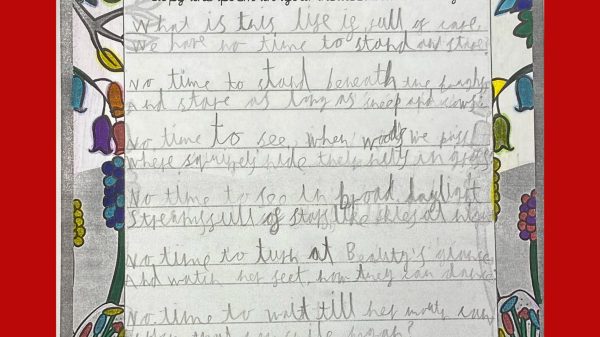 What is this life if full of care,
We have no time to stand and stare.
No time to stand beneath the boughs
And stare as long as sheep and cows.
No time to see, when woods we pass
Where squirrels hide their nuts in grass
No time to see in broad daylight
Streams full of stars, like skies at night
No time to turn at Beauty's glance
And watch her feet, how they can dance
No time to wait till her mouth can